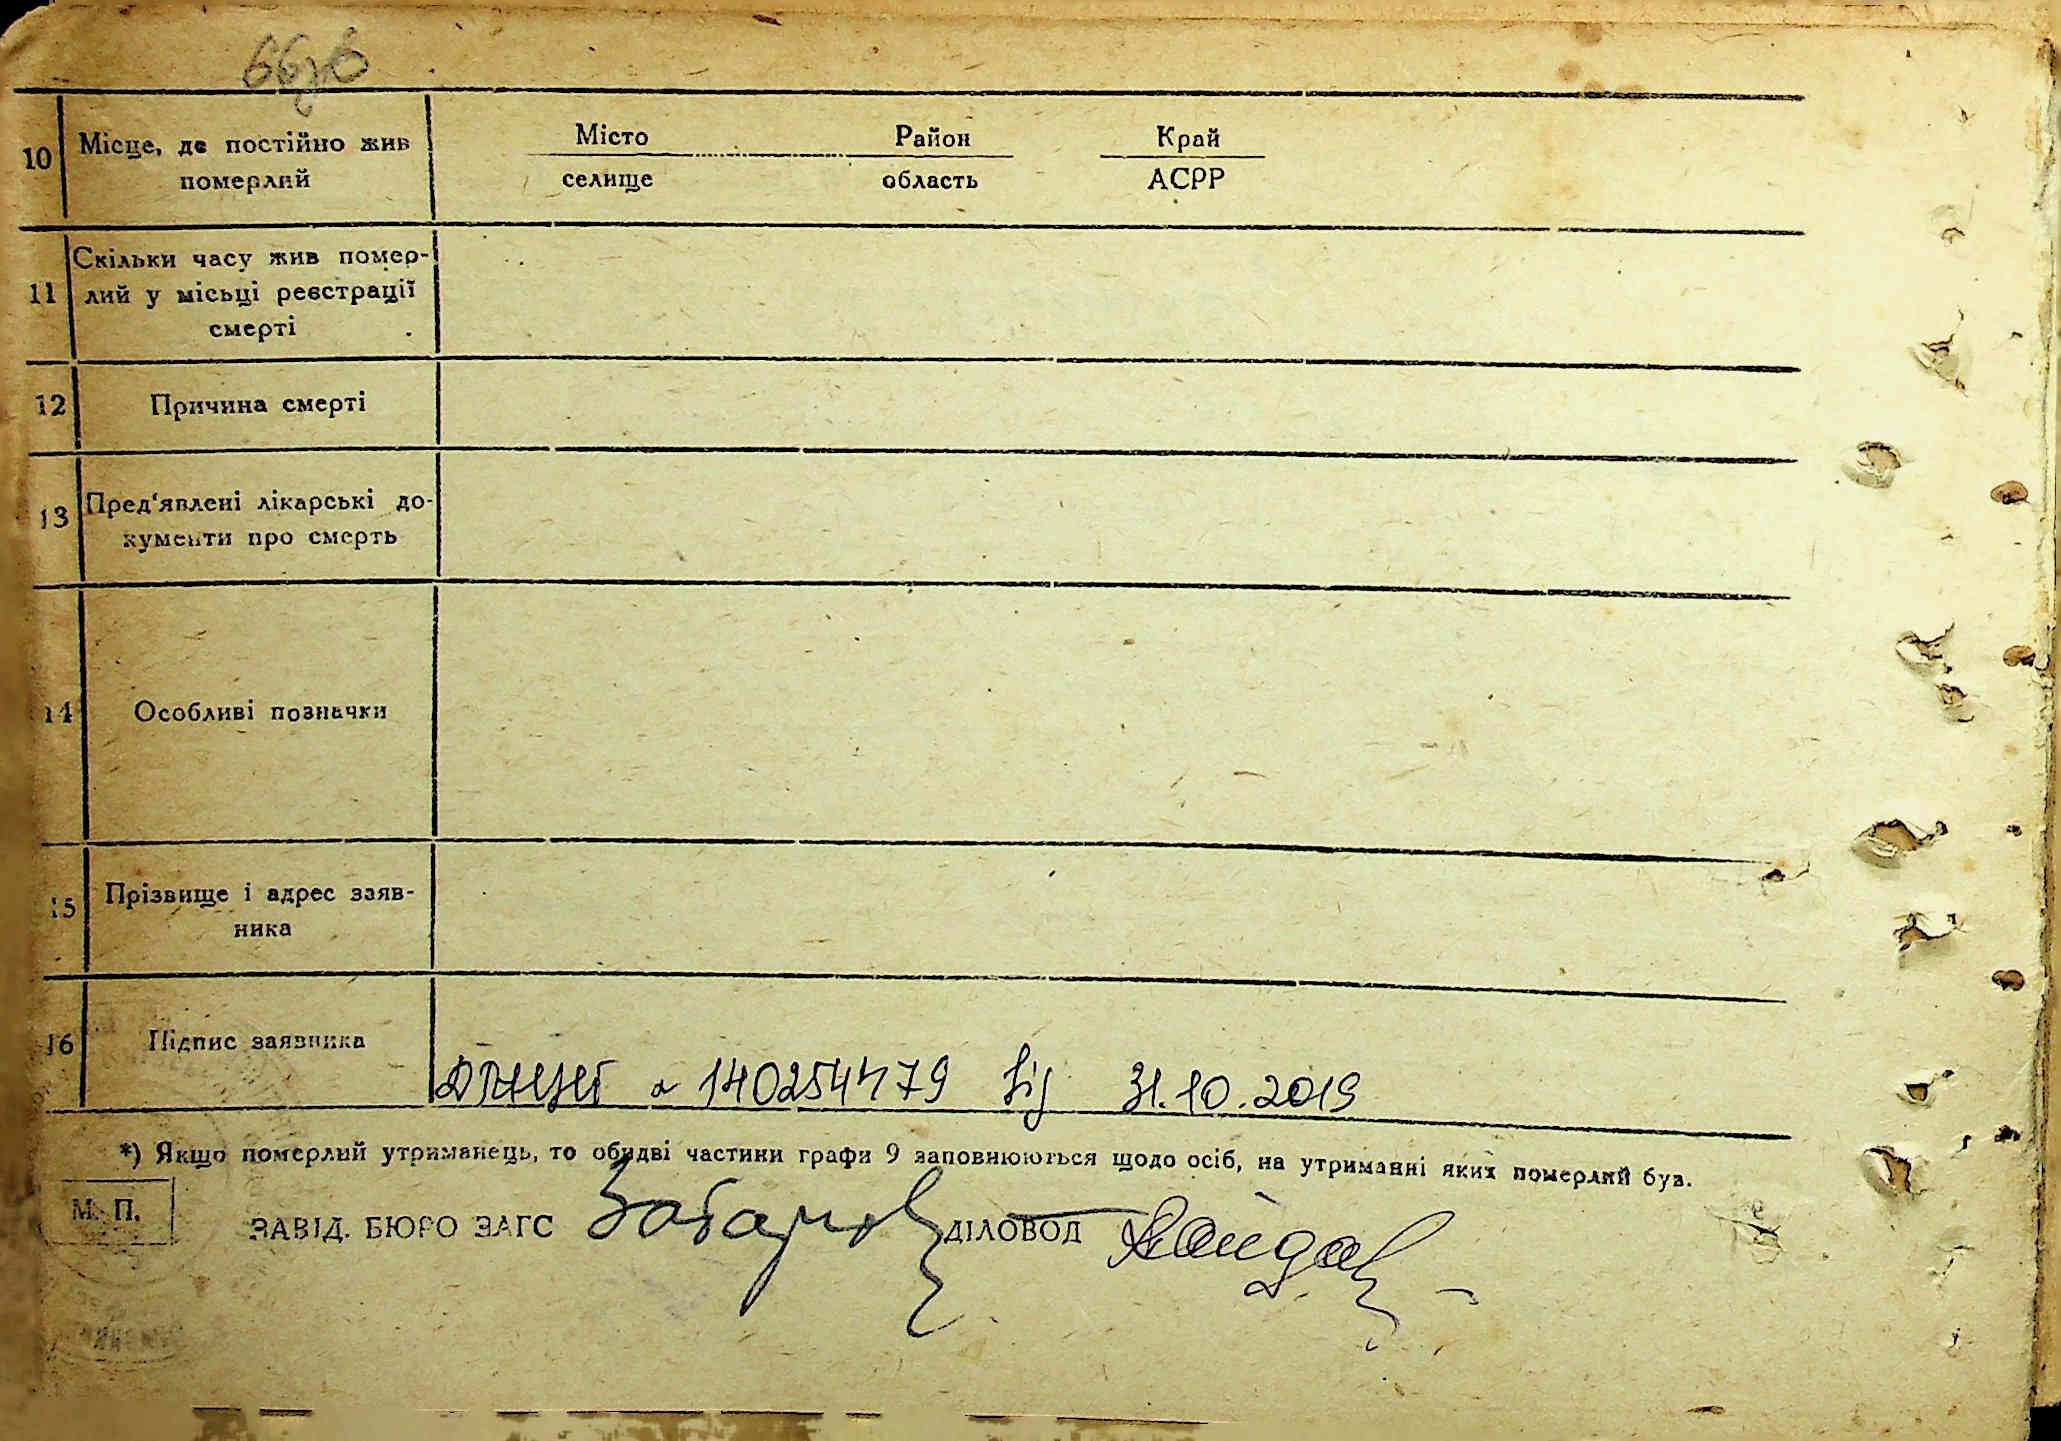 66 зв
10 Місце, де постійно жив Місто Район Край
померлий селище область АСРР
Скільки часу жив помер-
11 лий у місьці реєстрації
смерті
12 Причина смерті
13 Пред'явлені лікарські до-
кументи про смерть
14 Особливі позначки
15 Прізвище і адрес заяв-
ника
16 Підпис заявника
140254479 від 31.10.2019
*) Якщо померлий утриманець, то обидві частини графи 9 заповнюються щодо осіб, на утриманні яких померлий був.
М. П.
ЗАВІД. БЮРО ЗАГС ДІЛОВОД